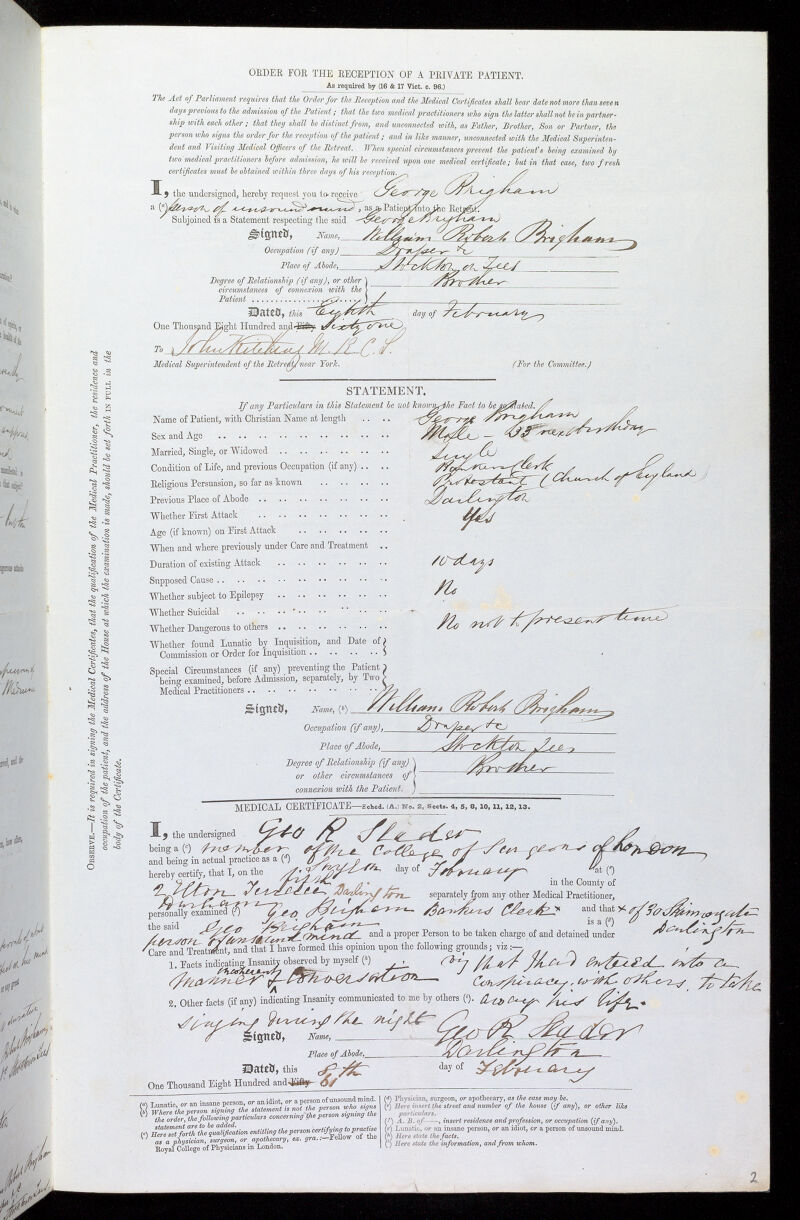 ORDER FOR THE RECEPTION OF A PRIVATE PATIENT.
As required by (16 & 17 Vict. c. 96.)
The Act of Parliament requires that the Order for the Reception and the Medical Certificates shall bear date not more than seven
days previous to the admission of the Patient; that the two medical practitioners who sign the latter shall not be in partner-
ship with each other; that they shall be distinct from, and unconnected with, as Father, Brother, Son or Partner, the
person who signs the order for the reception of the patient; and in like manner, unconnected with the Medical Superinten-
dent and Visiting Medical Officers of the Retreat. When special circumstances prevent the patient's being examined by
two medical practitioners before admission, he will be received upon one medical certificate; but in that case, two fresh
certificates must be obtained within three days of his reception.
I, the undersigned, hereby request you to receive George Brigham
a (a) person of unsound mind, as a Patient into the Retreat.
Subjoined is a Statement respecting the said George Brigham
Signed, Name, William Robert Brigham
Occupation (if any) Draper &c
Place of Abode, Stockton on Tees
Degree of Relationship (if any), or other
circumstances of connexion with the
Patient Brother
Dated, this Eighth day of February
One Thousand Eight Hundred and Fifty Sixty one
To John Kitching M.R.C.S.
Medical Superintendent of the Retreat, near York. (For the Committee.)
STATEMENT.
If any Particulars in this Statement be not known, the Fact to be so stated.
Name of Patient, with Christian Name at length George Brigham
Sex and Age Male - 33 next birthday
Married, Single, or Widowed Single
Condition of Life, and previous Occupation (if any) Bankers Clerk
Religious Persuasion, so far as known Protestant (Church of England)
Previous Place of Abode Darlington
Whether First Attack Yes
Age (if known) on First Attack
When and where previously under Care and Treatment
Duration of existing Attack 10 days
Supposed Cause
Whether subject to Epilepsy No
Whether Suicidal
Whether Dangerous to others No not to present time
Whether found Lunatic by Inquisition, and Date of
Commission or Order for Inquisition
Special Circumstances (if any) preventing the Patient
being examined, before Admission, separately, by Two
Medical Practitioners
Signed, Name, (b) William Robert Brigham
Occupation (if any), Draper &c
Place of Abode, Stockton Tees
Degree of Relationship (if any)
or other circumstances of
connexion with the Patient. Brother
MEDICAL CERTIFICATE—Sched. (A.) No. 2, Sects. 4, 5, 8, 10, 11, 12, 13.
I, the undersigned Geo R
being a (c) member of the College of Surgeons of London
and being in actual practice as a (d) Surgeon
hereby certify, that I, on the fifth day of February at (e)
2 Elton Terrace Darlington in the County of
Durham separately from any other Medical Practitioner,
personally examined (f) Geo. Brigham Bankers Clerk x and that x of 30 Skinnergate Darlington
the said Geo Brigham is a (g)
person of unsound mind and a proper Person to be taken charge of and detained under
Care and Treatment, and that I have formed this opinion upon the following grounds; viz:—
1. Facts indicating Insanity observed by myself (h) viz that I had entered into a
manner & incoherent Conversation conspiracy with others, to take
2. Other facts (if any) indicating Insanity communicated to me by others (i). away his life.
Singing during the night
Signed, Name, Geo R
Place of Abode, Darlington
Dated, this 8th day of February
One Thousand Eight Hundred and Fifty 61
(a) Lunatic, or an insane person, or an idiot, or a person of unsound mind.
(b) Where the person signing the statement is not the person who signs
the order, the following particulars concerning the person signing the
statement are to be added.
(c) Here set forth the qualification entitling the person certifying to practise
as a physician, surgeon, or apothecary, ex. gra.:—Fellow of the
Royal College of Physicians in London.
(d) Physician, surgeon, or apothecary, as the case may be.
(e) Here insert the street and number of the house (if any), or other like
particulars.
(f) A. B. of——, insert residence and profession, or occupation (if any).
(g) Lunatic, or an insane person, or an idiot, or a person of unsound mind.
(h) Here state the facts.
(i) Here state the information, and from whom.
OBSERVE.—It is required in signing the Medical Certificates, that the qualification of the Medical Practitioner, the residence and
occupation of the patient, and the address of the House at which the examination is made, should be set forth IN FULL in the
body of the Certificate.
2